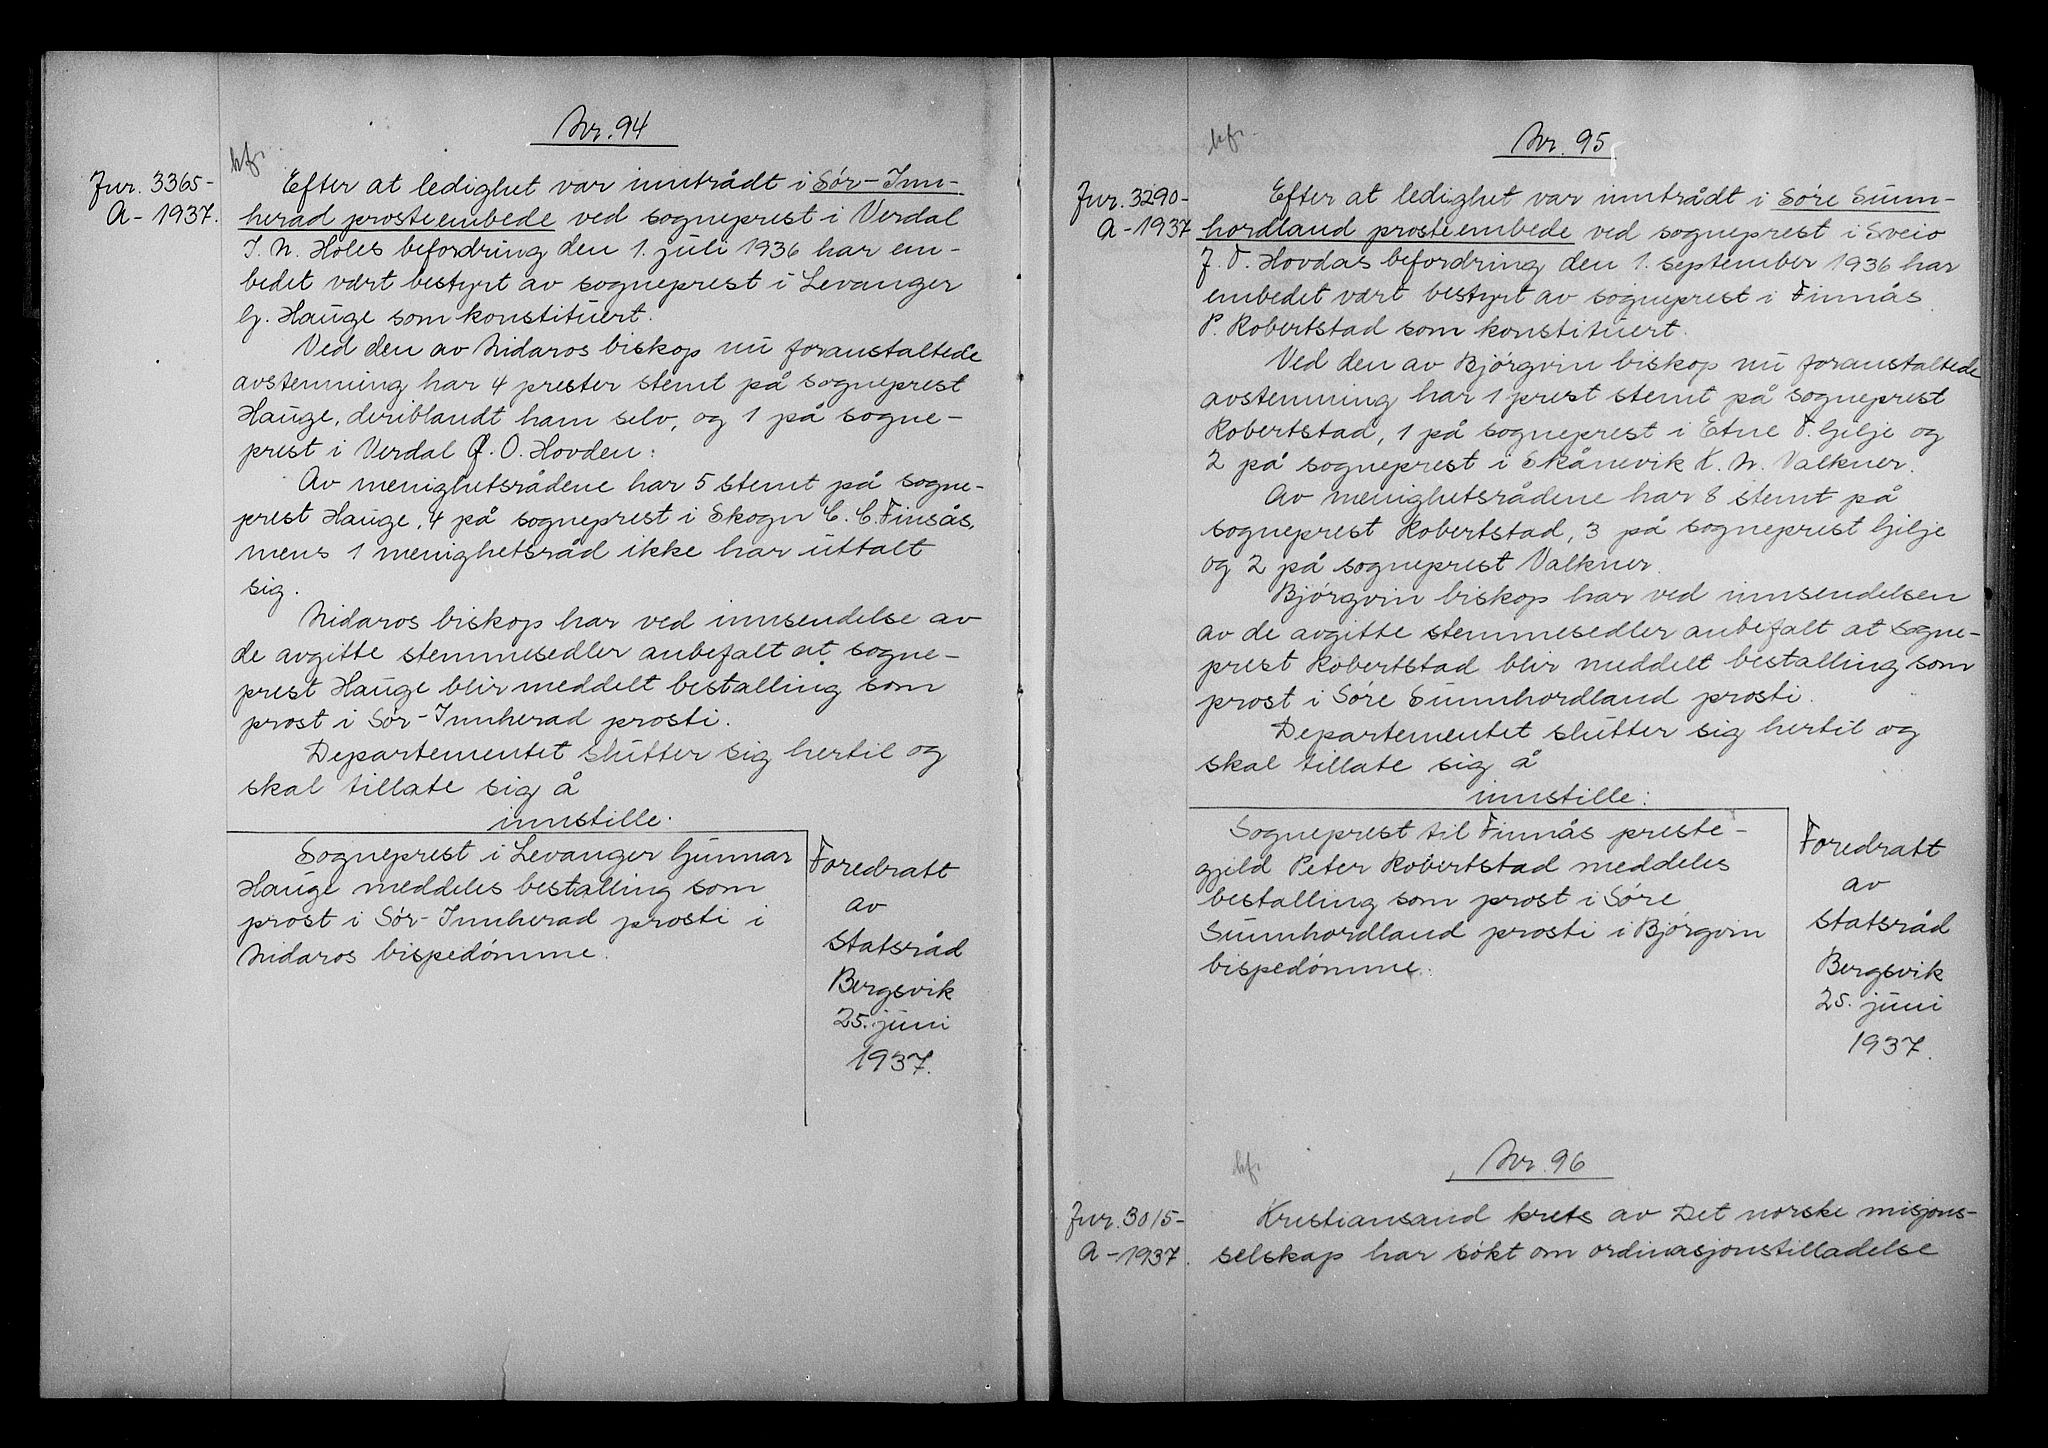 Nr. 94
kfr.
Jnr. 3365-
A-1937.
Efter at ledighet var inntrådt i Sør-Inn-
herad prosteembede ved sogneprest i Verdal
J. N. Holes befordring den 1. juli 1936 har em-
bedet vært bestyrt av sogneprest i Levanger
G. Hauge som konstituert.
Ved den av Nidaros biskop nu foranstaltede
avstemning har 4 prester stemt på sogneprest
Hauge, deriblandt ham selv, og 1 på sogne-
prest i Verdal O. Hovden.
Av menighetsrådene har 5 stemt på sogne-
prest Hauge, 4 på sogneprest i Skogn C. C. Finsås,
mens 1 menighetsråd ikke har uttalt
sig.
Nidaros biskop har ved innsendelse av
de avgitte stemmesedler anbefalt at sogne-
prest Hauge blir meddelt bestalling som
prost i Sør-Innherad prosti.
Departementet slutter sig hertil og
skal tillate sig å
innstille:
Sogneprest i Levanger Gunnar
Hauge meddeles bestalling som
prost i Sør-Innherad prosti i
Nidaros bispedømme.
Foredratt
av
statsråd
Bergsvik
25. juni
1937.
Nr. 95
kfr.
Jnr. 3290-
A-1937
Efter at ledighet var inntrådt i Søre Sunn-
hordland prosteembede ved sogneprest i Sveio
J. T. Hovdas befordring den 1. september 1936 har
embedet vært bestyrt av sogneprest i Finnås
P. Robertstad som konstituert.
Ved den av Bjørgvin biskop nu foranstaltede
avstemning har 1 prest stemt på sogneprest
Robertstad, 1 på sogneprest i Etne T. Gilje og
2 på sogneprest i Skånevik K. N. Valkner.
Av menighetsrådene har 8 stemt på
sogneprest Robertstad, 3 på sogneprest Gilje
og 2 på sogneprest Valkner.
Bjørgvin biskop har ved innsendelsen
av de avgitte stemmesedler anbefalt at sogne-
prest Robertstad blir meddelt bestalling som
prost i Søre Sunnhordland prosti.
Departementet slutter sig hertil og
skal tillate sig å
innstille:
Sogneprest til Finnås preste-
gjeld Peter Robertstad meddeles
bestalling som prost i Søre
Sunnhordland prosti i Bjørgvin
bispedømme.
Foredratt
av
statsråd
Bergsvik
25. juni
1937.
Nr. 96
kfr.
Jnr. 3015-
A-1937.
Kristiansand krets av Det norske misjons-
selskap har søkt om ordinasjonstilladelse